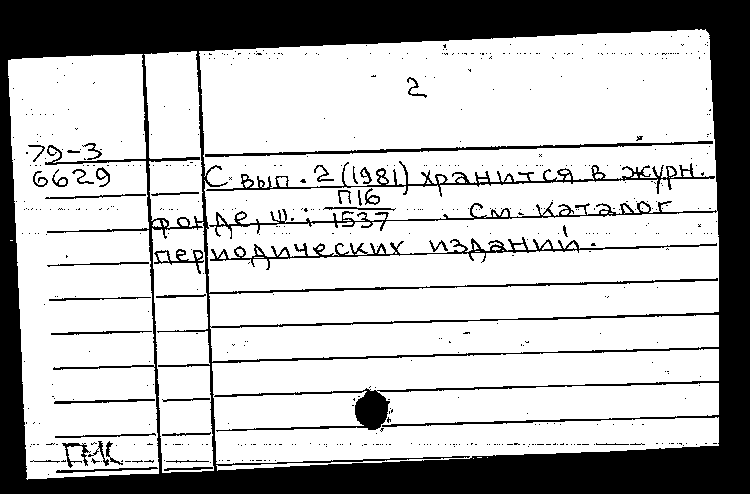 2
79-3
6629
С вып. 2 (1981) хранится в журн.
фонде, ш.: П16/1537 . См. каталог
периодических изданий.
ГМК